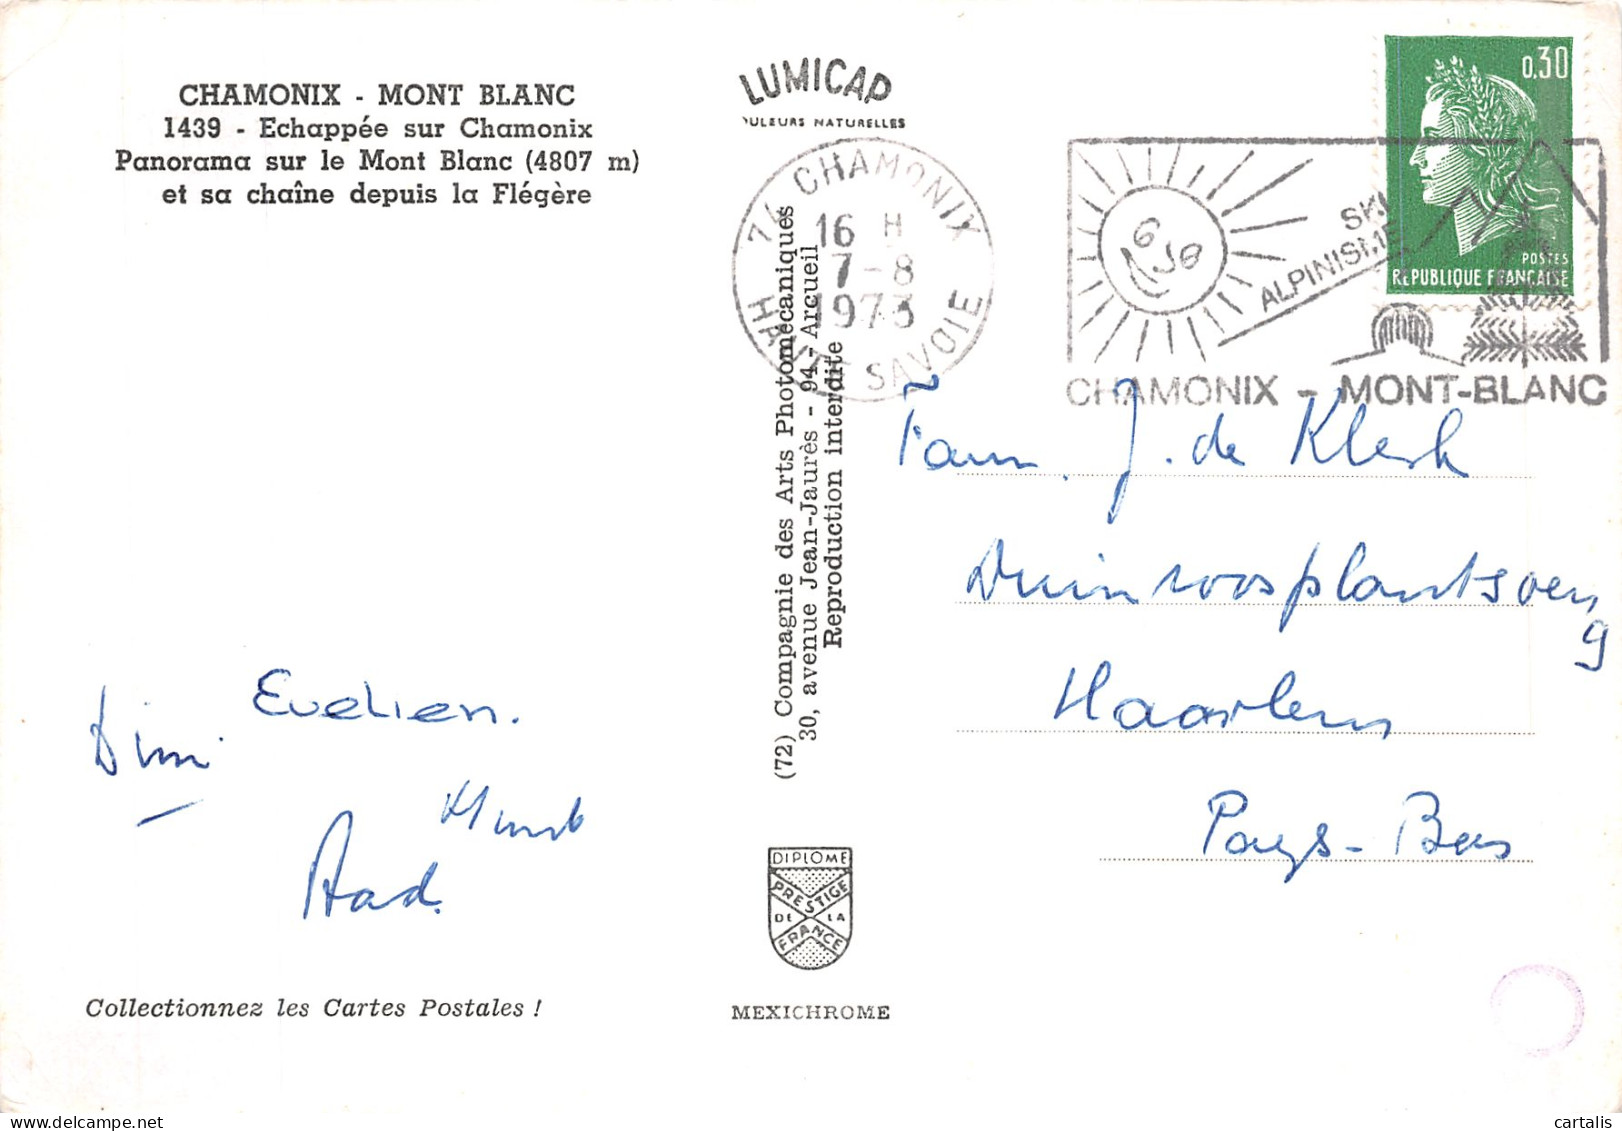 CHAMONIX - MONT BLANC
1439 - Echappée sur Chamonix
Panorama sur le Mont Blanc (4807 m)
et sa chaîne depuis la Flégère
LUMICAP
OULEURS NATURELLES
74 CHAMONIX
16 H
7-8
1973
HAUTE SAVOIE
SKI
ALPINISME
CHAMONIX - MONT-BLANC
0,30
POSTES
REPUBLIQUE FRANÇAISE
(72) Compagnie des Arts Photomécaniques
30, avenue Jean-Jaurès - 94 - Arcueil
Reproduction interdite
Fam. J. de Klerk
Duinroosplantsoen
9
Haarlem
Pays-Bas
Evelien.
Wim
Aad.
DIPLOME
PRESTIGE
DE LA
FRANCE
Collectionnez les Cartes Postales !
MEXICHROME
cartalis
www.delcampe.net